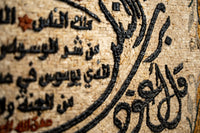 قل أعوذ
برب الناس
ملك الناس
من شر الوسواس
الذي يوسوس في
من الجنة